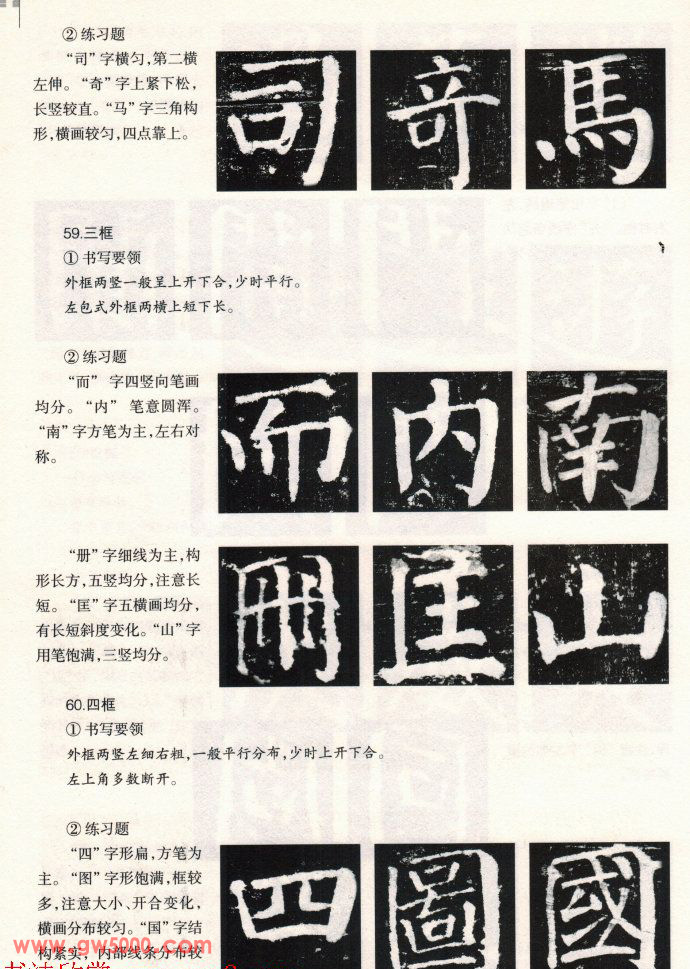 ② 练习题
“司”字横匀,第二横
左伸。“奇”字上紧下松,
长竖较直。“马”字三角构
形,横画较匀,四点靠上。
司 奇 馬
59.三框
① 书写要领
外框两竖一般呈上开下合,少时平行。
左包式外框两横上短下长。
② 练习题
“而” 字四竖向笔画
均分。“内” 笔意圆浑。
“南”字方笔为主,左右对
称。
而 内 南
“册”字细线为主,构
形长方,五竖均分,注意长
短。“匡”字五横画均分,
有长短斜度变化。“山”字
用笔饱满,三竖均分。
冊 匡 山
60.四框
① 书写要领
外框两竖左细右粗,一般平行分布,少时上开下合。
左上角多数断开。
② 练习题
“四”字形扁,方笔为
主。“图”字形饱满,框较
多,注意大小、开合变化,
横画分布较匀。“国”字结
构紧实,内部线条分布较
四 圖 國
www.gw5000.com
书法欣赏